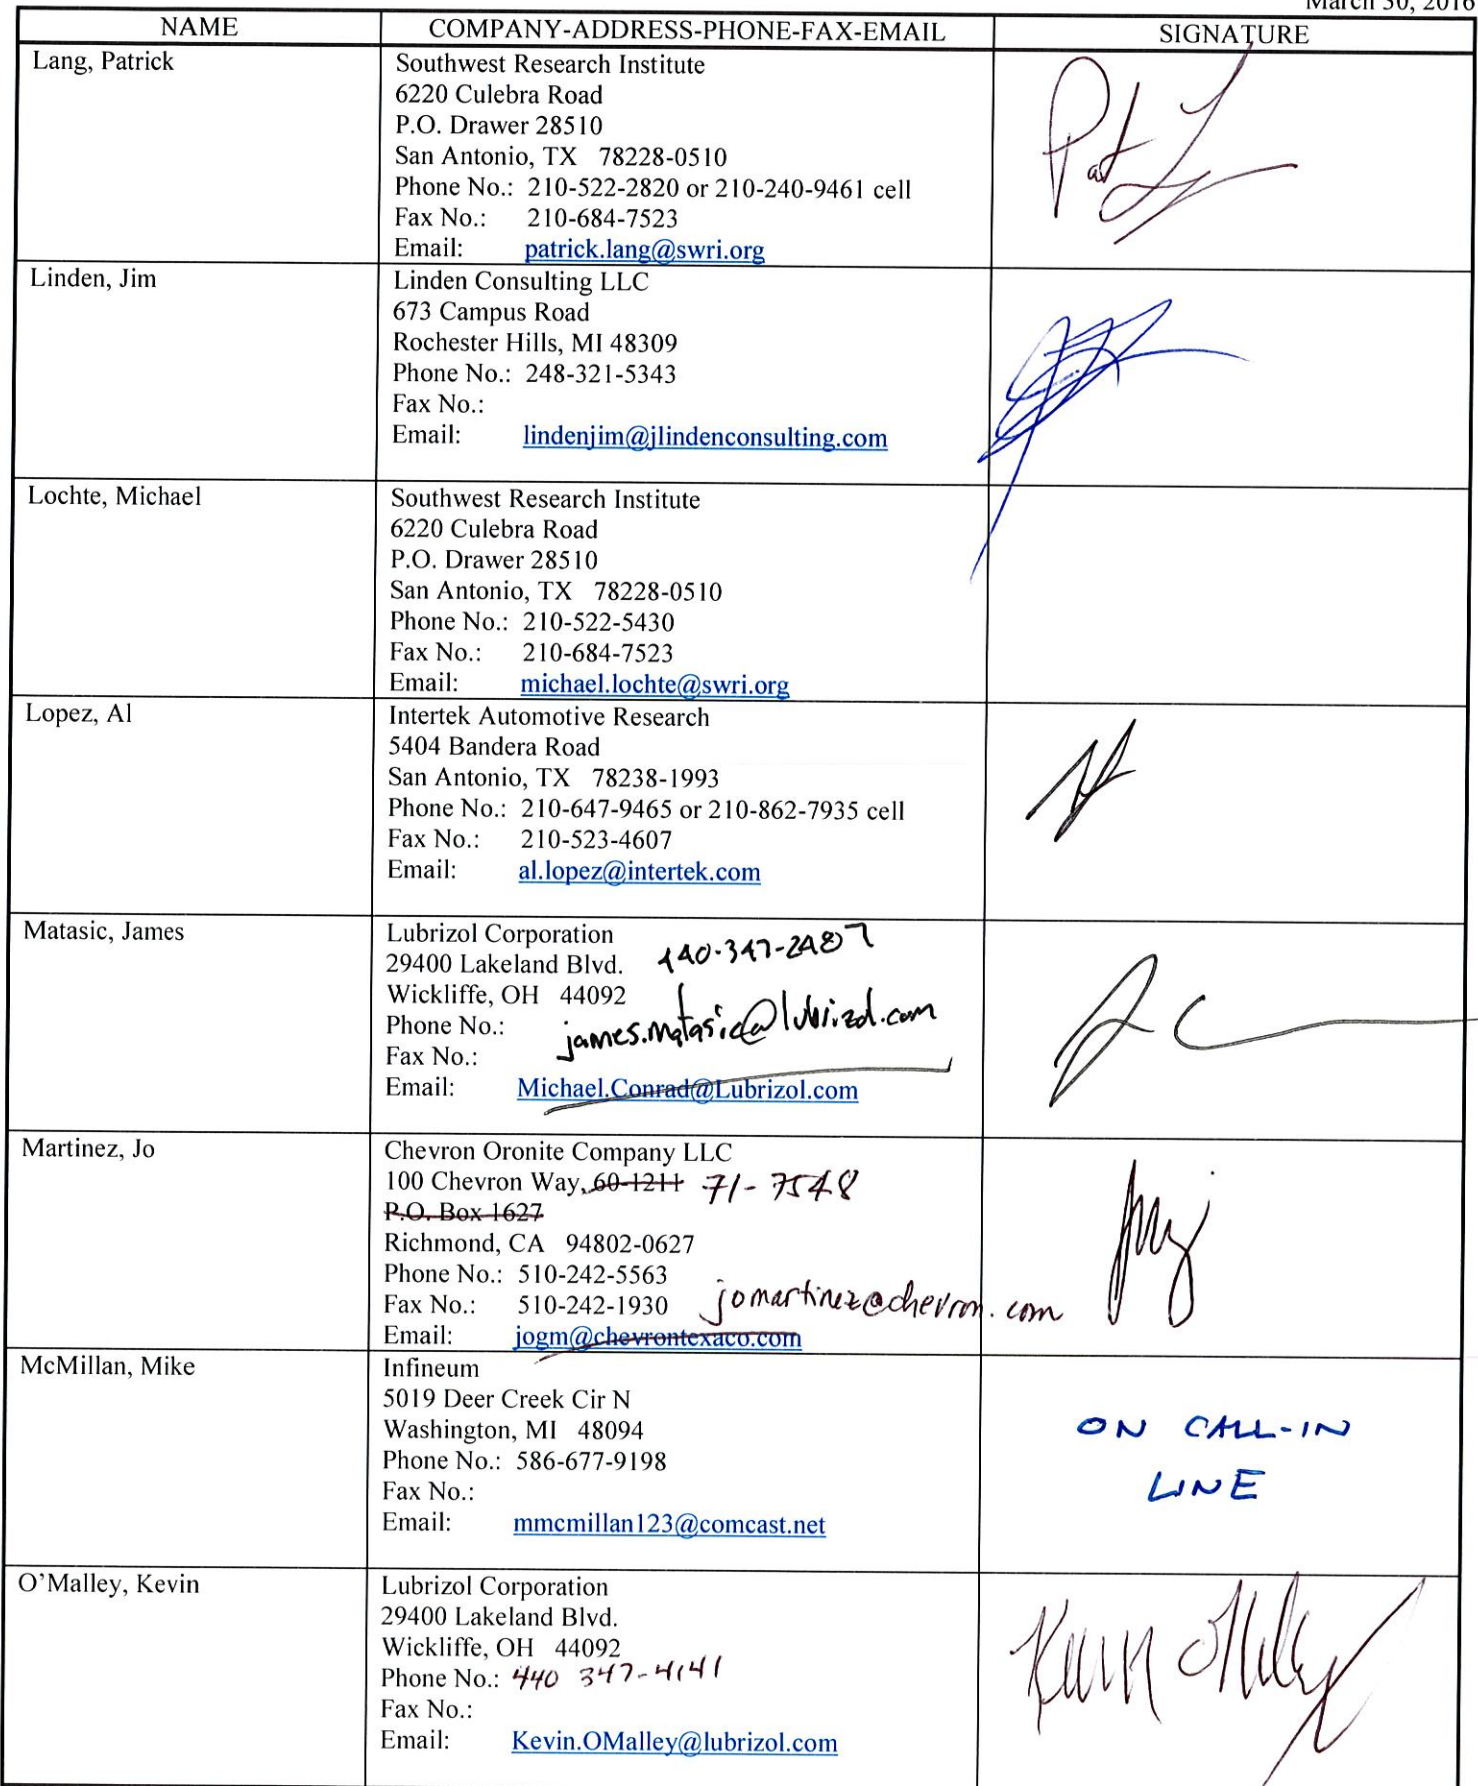 March 30, 2016
NAME COMPANY-ADDRESS-PHONE-FAX-EMAIL SIGNATURE
Lang, Patrick
Southwest Research Institute
6220 Culebra Road
P.O. Drawer 28510
San Antonio, TX 78228-0510
Phone No.: 210-522-2820 or 210-240-9461 cell
Fax No.: 210-684-7523
Email: patrick.lang@swri.org
Pat L
Linden, Jim
Linden Consulting LLC
673 Campus Road
Rochester Hills, MI 48309
Phone No.: 248-321-5343
Fax No.:
Email: lindenjim@jlindenconsulting.com
Lochte, Michael
Southwest Research Institute
6220 Culebra Road
P.O. Drawer 28510
San Antonio, TX 78228-0510
Phone No.: 210-522-5430
Fax No.: 210-684-7523
Email: michael.lochte@swri.org
Lopez, Al
Intertek Automotive Research
5404 Bandera Road
San Antonio, TX 78238-1993
Phone No.: 210-647-9465 or 210-862-7935 cell
Fax No.: 210-523-4607
Email: al.lopez@intertek.com
Matasic, James
Lubrizol Corporation
29400 Lakeland Blvd. 440-347-2487
Wickliffe, OH 44092
Phone No.: james.matasic@lubrizol.com
Fax No.:
Email: Michael.Conrad@Lubrizol.com
Martinez, Jo
Chevron Oronite Company LLC
100 Chevron Way, 60-1211 71-7548
P.O. Box 1627
Richmond, CA 94802-0627
Phone No.: 510-242-5563
Fax No.: 510-242-1930 jomartinez@chevron.com
Email: jogm@chevrontexaco.com
McMillan, Mike
Infineum
5019 Deer Creek Cir N
Washington, MI 48094
Phone No.: 586-677-9198
Fax No.:
Email: mmcmillan123@comcast.net
ON CALL-IN
LINE
O'Malley, Kevin
Lubrizol Corporation
29400 Lakeland Blvd.
Wickliffe, OH 44092
Phone No.: 440 347-4141
Fax No.:
Email: Kevin.OMalley@lubrizol.com
Kevin OMalley